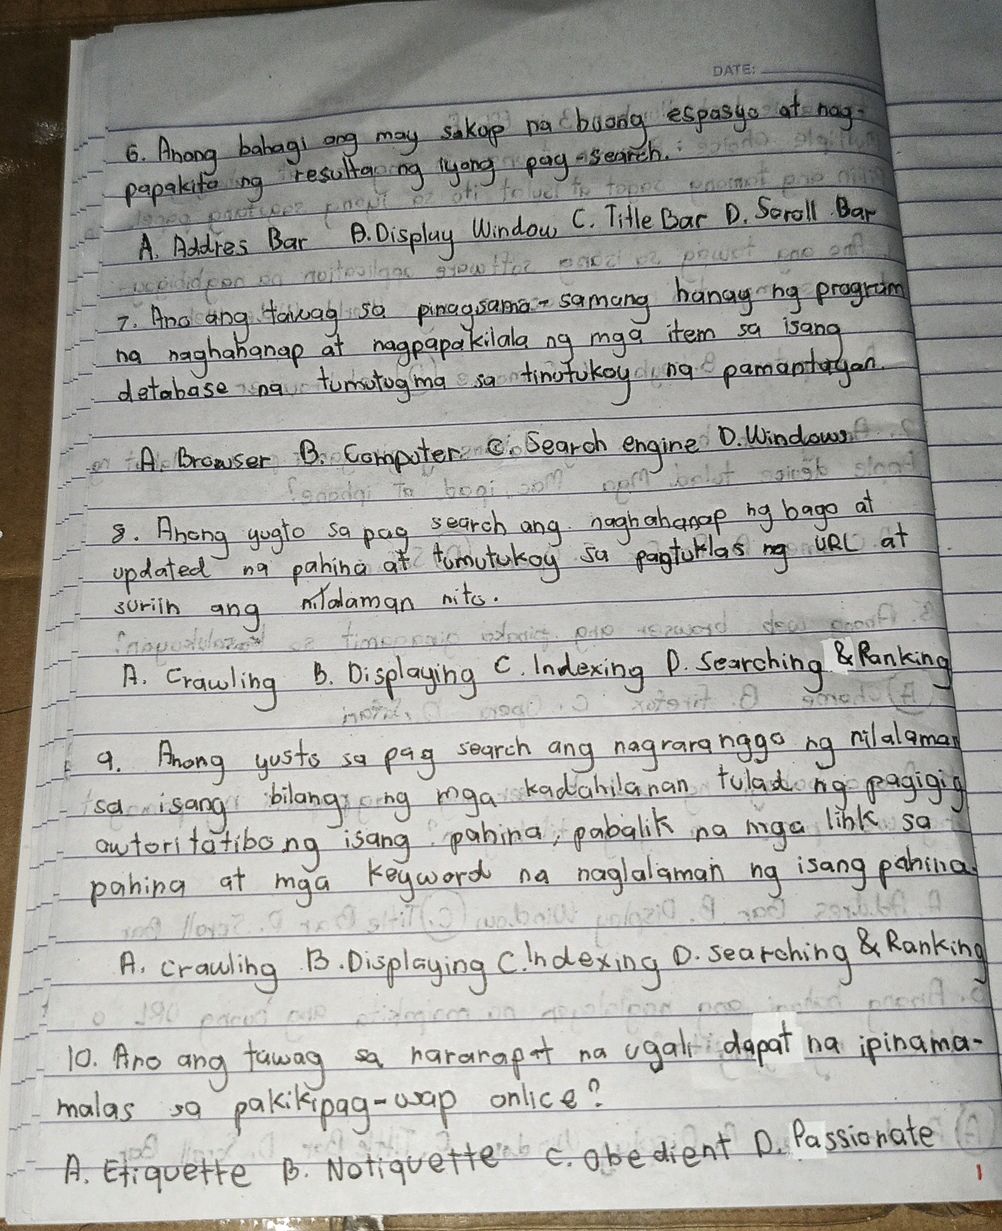 DATE:
6. Anong bahagi ang may sakop na buong espasyo at nag-
papakita ng resulta ng iyong pag-search.
A. Addres Bar B. Display Window C. Title Bar D. Scroll Bar
7. Ano ang tawag sa pinagsama-samang hanay ng program
na naghahanap at nagpapakilala ng mga item sa isang
database na tumutugma sa tinutukoy na pamantayan.
A. Browser B. Computer C. Search engine D. Windows
8. Anong yugto sa pag search ang naghahanap ng bago at
updated na pahina at tumutukoy sa pagtuklas ng URL at
suriin ang nilalaman nito.
A. Crawling B. Displaying C. Indexing D. Searching & Ranking
9. Anong yusto sa pag search ang nagraranggo ng nilalaman
sa isang bilang ng mga kadahilanan tulad ng pagigig
awtoritatibong isang pahina, pabalik na mga link sa
pahina at mga keyword na naglalaman ng isang pahina.
A. crawling B. Displaying C. Indexing D. searching & Ranking
10. Ano ang tawag sa nararapat na ugali dapat na ipinama-
malas sa pakikipag-usap onlice?
A. Etiquette B. Notiquette C. Obedient D. Passionate
1